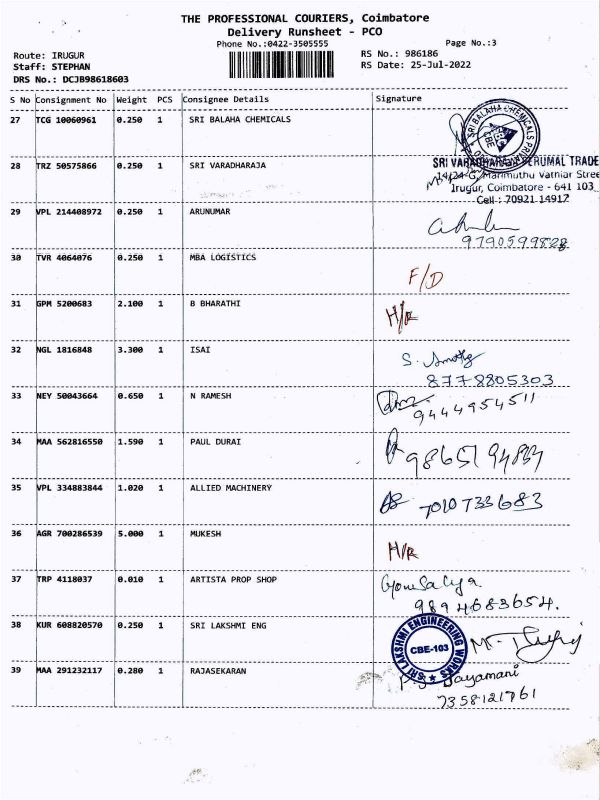 THE PROFESSIONAL COURIERS, Coimbatore
Delivery Runsheet - PCO
Phone No.:0422-3505555
Page No.:3
Route: IRUGUR
RS No.: 986186
Staff: STEPHAN
RS Date: 25-Jul-2022
DRS No.: DCJB98618603
S No Consignment No Weight PCS Consignee Details Signature
27 TCG 10060961 0.250 1 SRI BALAHA CHEMICALS
SRI BALAHA CHEMICALS CBE
28 TRZ 50575866 0.250 1 SRI VARADHARAJA
SRI VARADHARAJA PERUMAL TRADE
14/24-G, Marimuthu Vathiar Stree
Irugur, Coimbatore - 641 103
Cell : 70921 14912
29 VPL 214408972 0.250 1 ARUNUMAR
9790599828
30 TVR 4064076 0.250 1 MBA LOGISTICS F/D
31 GPM 5200683 2.100 1 B BHARATHI H/R
32 NGL 1816848 3.300 1 ISAI
8778805303
33 NEY 50043664 0.650 1 N RAMESH
9444954511
34 MAA 562816550 1.590 1 PAUL DURAI
35 VPL 334883844 1.020 1 ALLIED MACHINERY
7010733683
36 AGR 700286539 5.000 1 MUKESH H/R
37 TRP 4118037 0.010 1 ARTISTA PROP SHOP
9894683654.
38 KUR 608820570 0.250 1 SRI LAKSHMI ENG
SRI LAKSHMI ENGINEERING WORKS CBE-103
39 MAA 291232117 0.280 1 RAJASEKARAN
Jayamani
7358121761